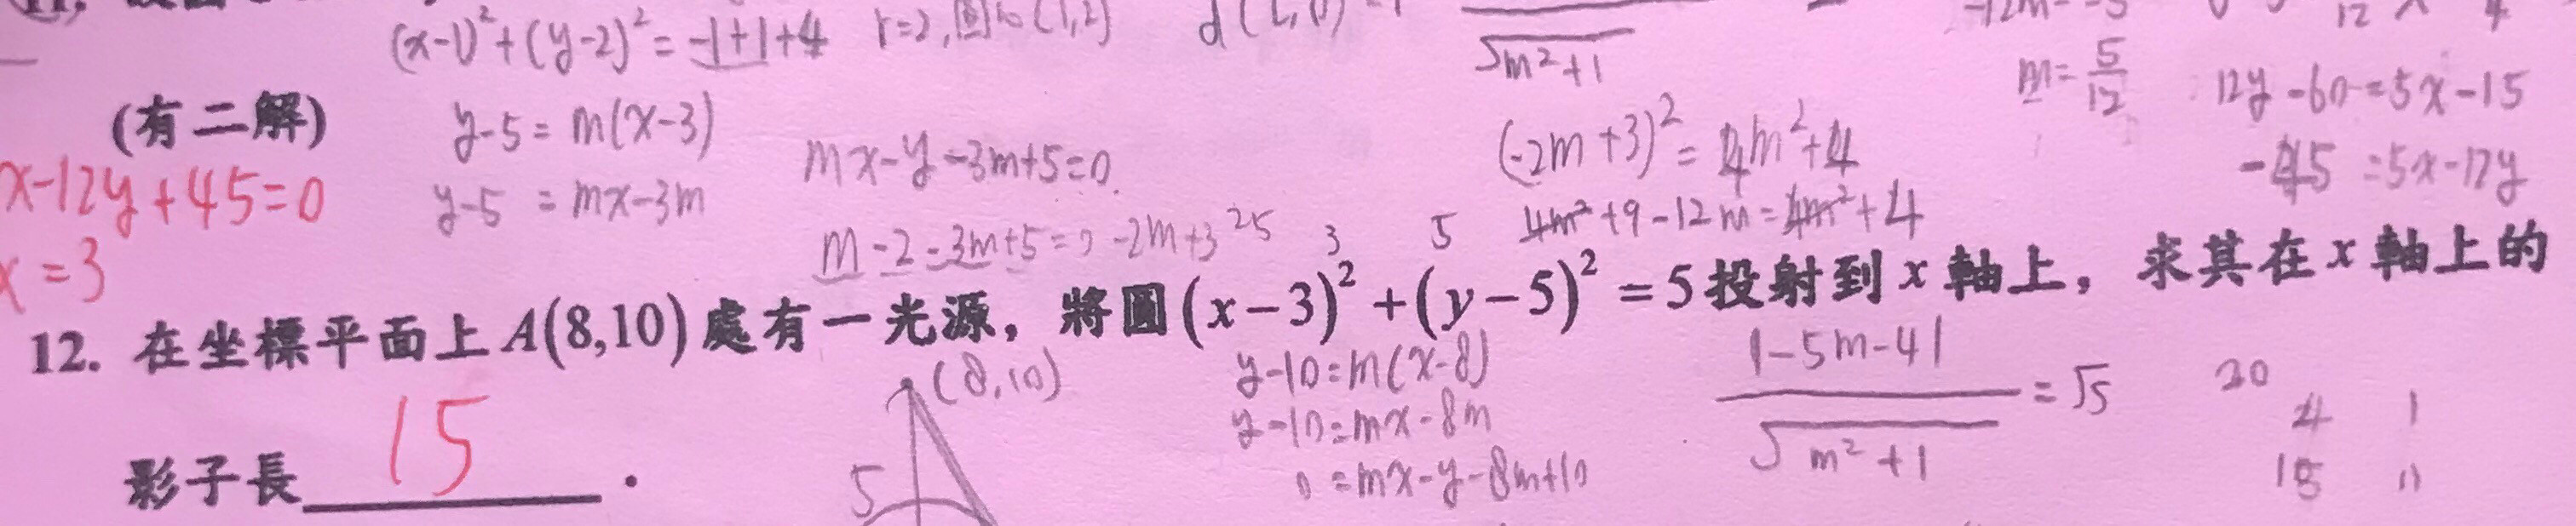 (x-1)²+(y-2)²=-1+1+4 r=2, 圓心(1,2)
√m²+1
m=5/12
12y-60=5x-15
(有二解)
y-5=m(x-3)
mx-y-3m+5=0
(-2m+3)²=4m²+4
-45=5x-12y
x-12y+45=0
y-5=mx-3m
4m²+9-12m=4m²+4
m-2-3m+5=0 -2m+3 25 3 5
x=3
12. 在坐標平面上A(8,10)處有一光源，將圓(x-3)²+(y-5)²=5投射到x軸上，求其在x軸上的
(8,10)
y-10=m(x-8)
|-5m-4|/√m²+1=√5
20
y-10=mx-8m
4 1
影子長 15 .
5
0=mx-y-8m+10
15 11